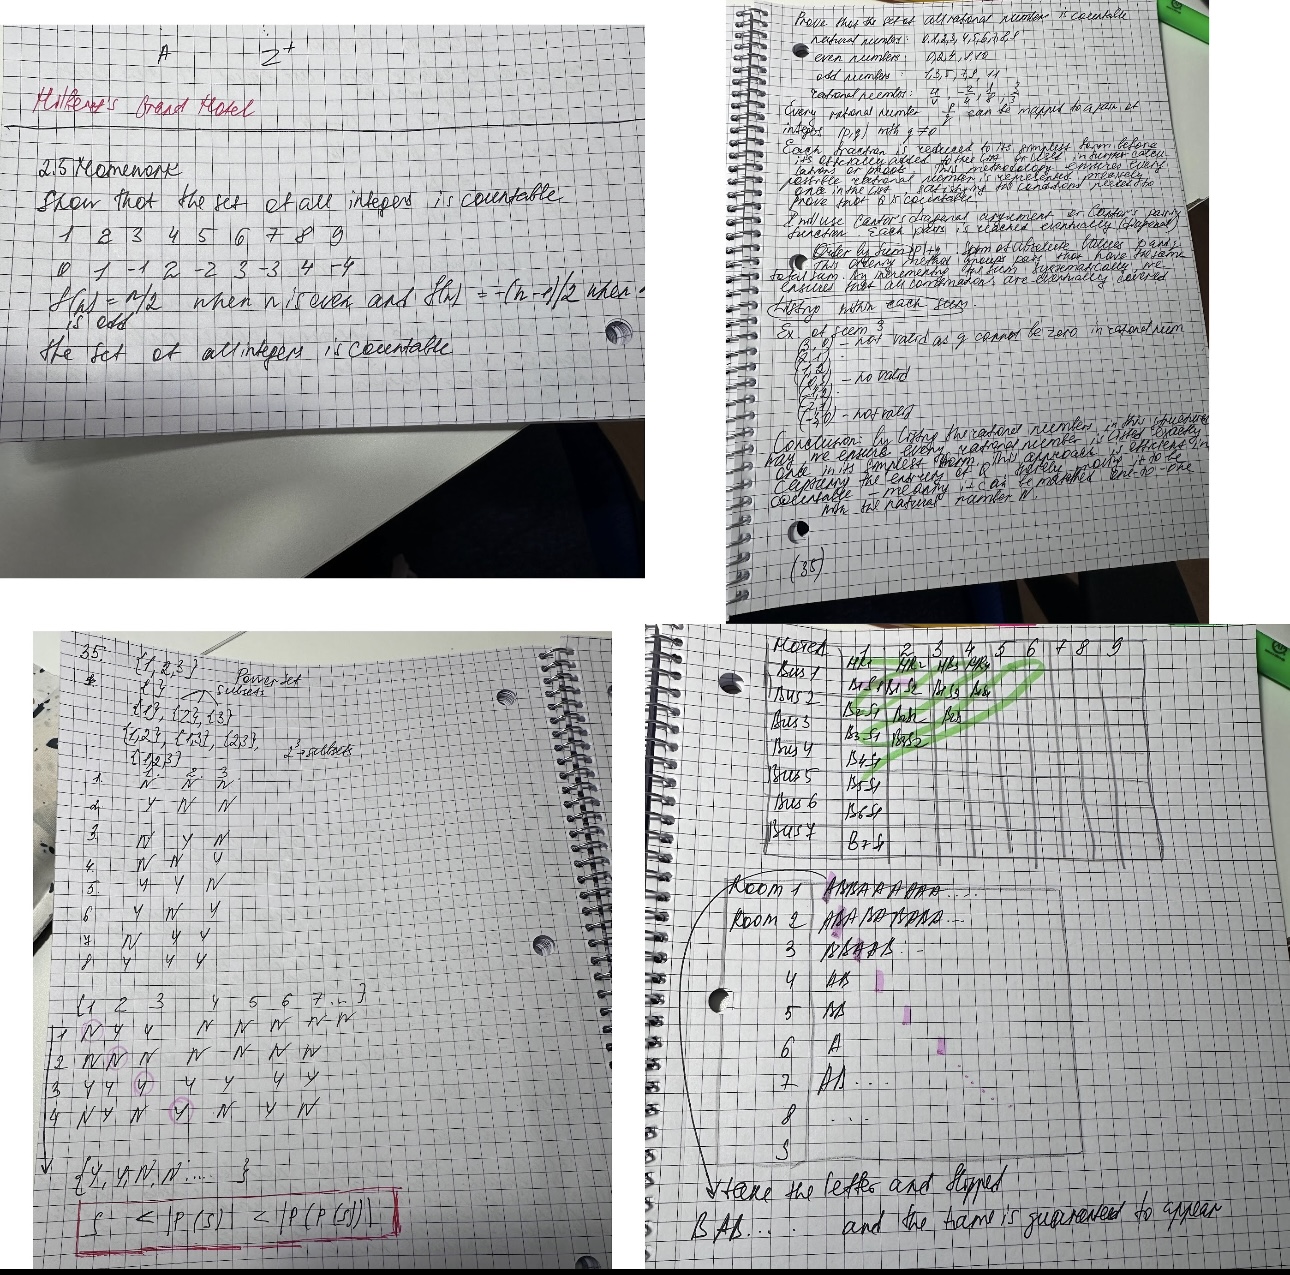 A Z+
Hilbert's Grand Hotel
2.5 Homework
Show that the set of all integers is countable
1 2 3 4 5 6 7 8 9
0 1 -1 2 -2 3 -3 4 -4
f(n) = n/2 when n is even and f(n) = -(n-1)/2 when
is odd
the set of all integers is countable
Prove that the set of all rational number is countable
natural number: 0,1,2,3,4,5,6,7,8,9
even numbers:
odd numbers:
rational number:
Every rational number p/q can be mapped to a pair of
integers (p,q) with q≠0
Each fraction is reduced to its simplest form before
its officially added to the list or used in further calcu-
lations or proofs. This methodology ensures every
possible rational number is represented precisely
once in the list satisfying the conditions needed to
prove that Q is countable
I will use Cantor's diagonal argument or Cantor's pairing
function. Each pairs is reached eventually (diagonal)
Order by sum |p|+q
This ordering method groups pairs that have the same
total sum. By incrementing this sum systematically we
ensures that all combinations are eventually covered
Listing within each sum
Ex of sum 3
(3,0) - not valid as q cannot be zero in rational num
(2,1)
(1,2)
(0,3) - no valid
(-1,2)
(-2,1)
(-3,0) - not valid
Conclusion: by listing the rational numbers in this structured
way we ensure every rational number is listed exactly
once in its simplest form. This approach is efficient in
capturing the entirety of Q thereby proving it to be
countable - meaning it can be matched one-to-one
with the natural number N.
(35)
35. {1,2,3}
Power set
{ } subsets
{1}, {2}, {3}
{1,2}, {1,3}, {2,3},
{1,2,3} subsets
1. 2. 3.
1. N N N
2. Y N N
3 N Y N
4. N N Y
5. Y Y N
6 Y N Y
7 N Y Y
8 Y Y Y
{1 2 3 4 5 6 7... }
1 N Y Y N N N N N
2 N N N N N N N
3 Y Y Y Y Y Y Y
4 N Y N Y N Y N
{Y, Y, N, N..... }
S < |P(S)| < |P(P(S))|
Hotel 1 2 3 4 5 6 7 8 9
HR1 HR2 HR3 HR4
Bus 1 B1S1 B1S2 B1S3 B1S4
Bus 2 B2S1 B2S2 B2S3
Bus 3 B3S1 B3S2
Bus 4 B4S1
Bus 5 B5S1
Bus 6 B6S1
Bus 7 B7S1
Room 1 ABBAAAAAAA....
Room 2
3 BBAAB...
4 AB
5
6 A
7 AB...
8 ...
9
take the letter and flipped
BAB.... and the name is guaranteed to appear